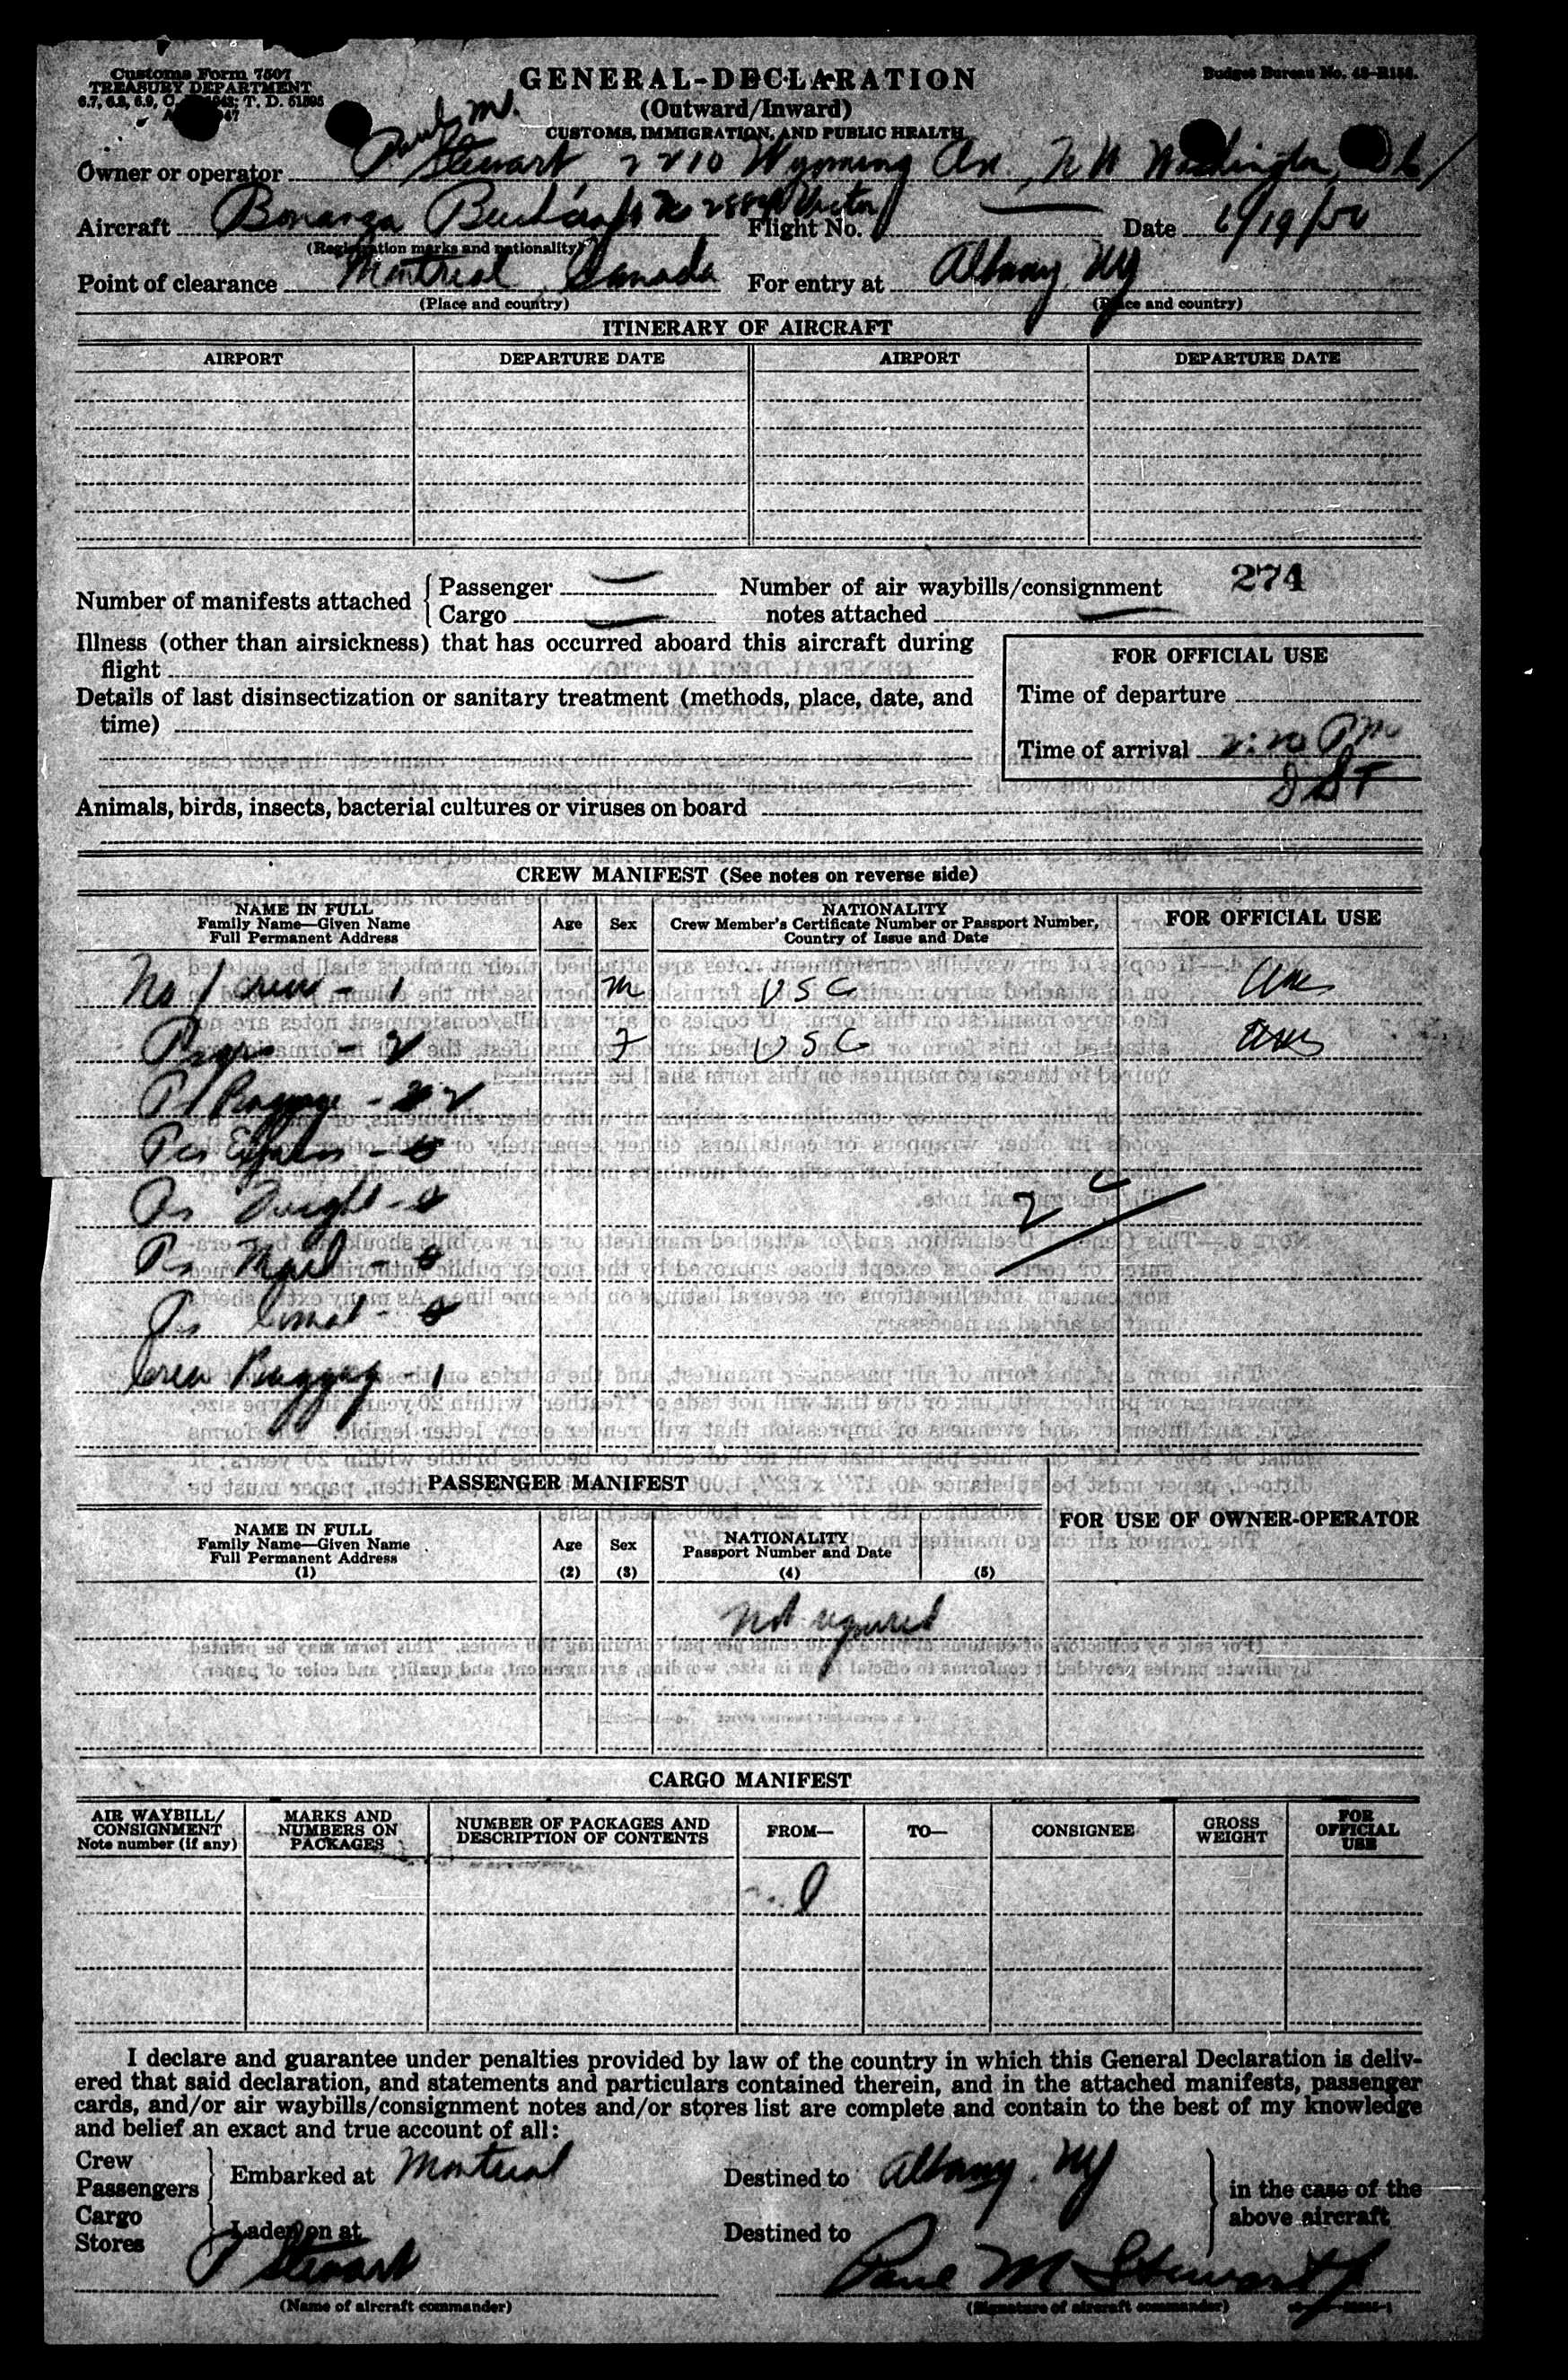 Customs Form 7507
TREASURY DEPARTMENT
GENERAL-DECLARATION
Budget Bureau No.
(Outward/Inward)
CUSTOMS, IMMIGRATION, AND PUBLIC HEALTH
Paul M.
Owner or operator Stewart, 2210 Wyoming Ave, NW Washington, DC
Aircraft Bonanza Beechcraft Flight No. — Date 6/19/50
(Registration marks and nationality)
Point of clearance Montreal, Canada For entry at Albany NY
(Place and country) (Place and country)
ITINERARY OF AIRCRAFT
AIRPORT DEPARTURE DATE AIRPORT DEPARTURE DATE
Number of manifests attached { Passenger — Number of air waybills/consignment 274
Cargo — notes attached —
Illness (other than airsickness) that has occurred aboard this aircraft during
flight
FOR OFFICIAL USE
Details of last disinsectization or sanitary treatment (methods, place, date, and
time)
Time of departure
Time of arrival 2:20 PM
DST
Animals, birds, insects, bacterial cultures or viruses on board
CREW MANIFEST (See notes on reverse side)
NAME IN FULL
Family Name—Given Name
Full Permanent Address
Age Sex
NATIONALITY
Crew Member's Certificate Number or Passport Number,
Country of Issue and Date
FOR OFFICIAL USE
No / crew - 1 M USC
- 2 F USC
Baggage - 2
Pcs Express - 0
Pcs Freight - 0
Pcs Mail - 0
Pcs - 0
Crew Baggage - 1
PASSENGER MANIFEST
NAME IN FULL
Family Name—Given Name
Full Permanent Address
(1)
Age
(2)
Sex
(3)
NATIONALITY
Passport Number and Date
(4) (5)
FOR USE OF OWNER-OPERATOR
Not required
CARGO MANIFEST
AIR WAYBILL/
CONSIGNMENT
Note number (if any)
MARKS AND
NUMBERS ON
PACKAGES
NUMBER OF PACKAGES AND
DESCRIPTION OF CONTENTS
FROM— TO— CONSIGNEE
GROSS
WEIGHT
FOR
OFFICIAL
USE
I declare and guarantee under penalties provided by law of the country in which this General Declaration is deliv-
ered that said declaration, and statements and particulars contained therein, and in the attached manifests, passenger
cards, and/or air waybills/consignment notes and/or stores list are complete and contain to the best of my knowledge
and belief an exact and true account of all:
Crew
Passengers } Embarked at Montreal Destined to Albany, NY } in the case of the
Cargo above aircraft
Stores } Laden on at Destined to
P Stewart Paul M Stewart
(Name of aircraft commander) (Signature of aircraft commander)